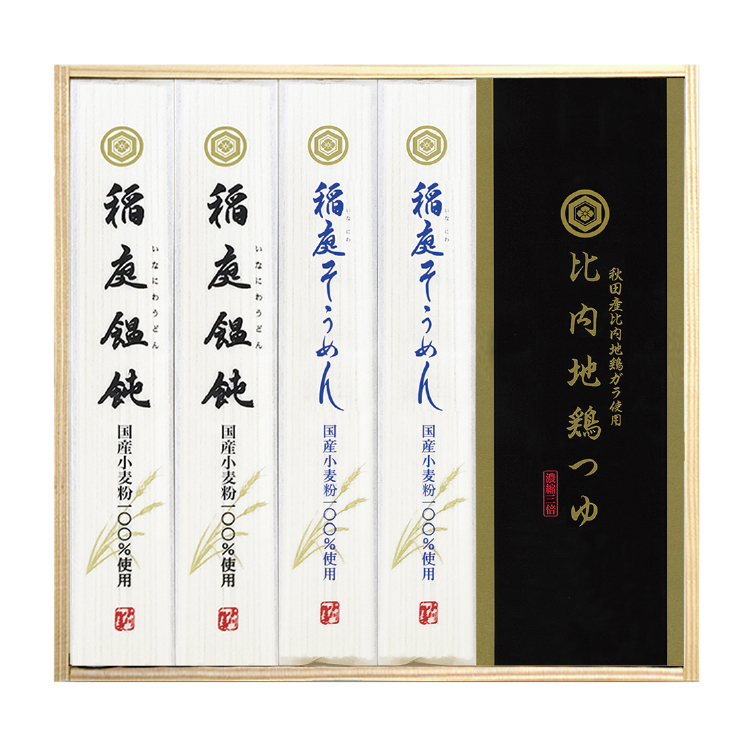 稲庭饂飩
いなにわうどん
国産小麦粉一〇〇%使用
稲庭饂飩
いなにわうどん
国産小麦粉一〇〇%使用
稲庭そうめん
いなにわ
国産小麦粉一〇〇%使用
稲庭そうめん
いなにわ
国産小麦粉一〇〇%使用
秋田産比内地鶏ガラ使用
比内地鶏つゆ
濃縮三倍